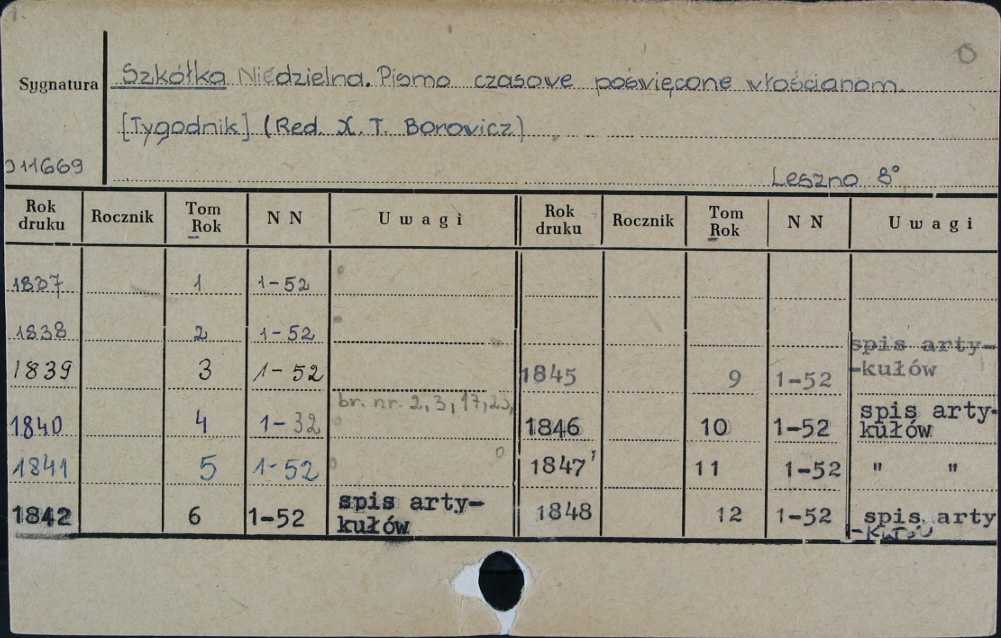 Sygnatura
Szkółka Niedzielna. Pismo czasowe poświęcone włościanom.
[Tygodnik] (Red. X. T. Borowicz)
011669
Leszno 8°
Rok druku Rocznik Tom Rok NN Uwagi Rok druku Rocznik Tom Rok NN Uwagi
1837 1 1-52
1838 2 1-52
1839 3 1-52 1845 9 1-52 spis arty-
-kułów
br. nr. 2, 3, 17, 23,
1840 4 1-32 1846 10 1-52 spis arty-
kułów
1841 5 1-52 1847 11 1-52 " "
1842 6 1-52 spis arty-
kułów 1848 12 1-52 spis arty
-kułów